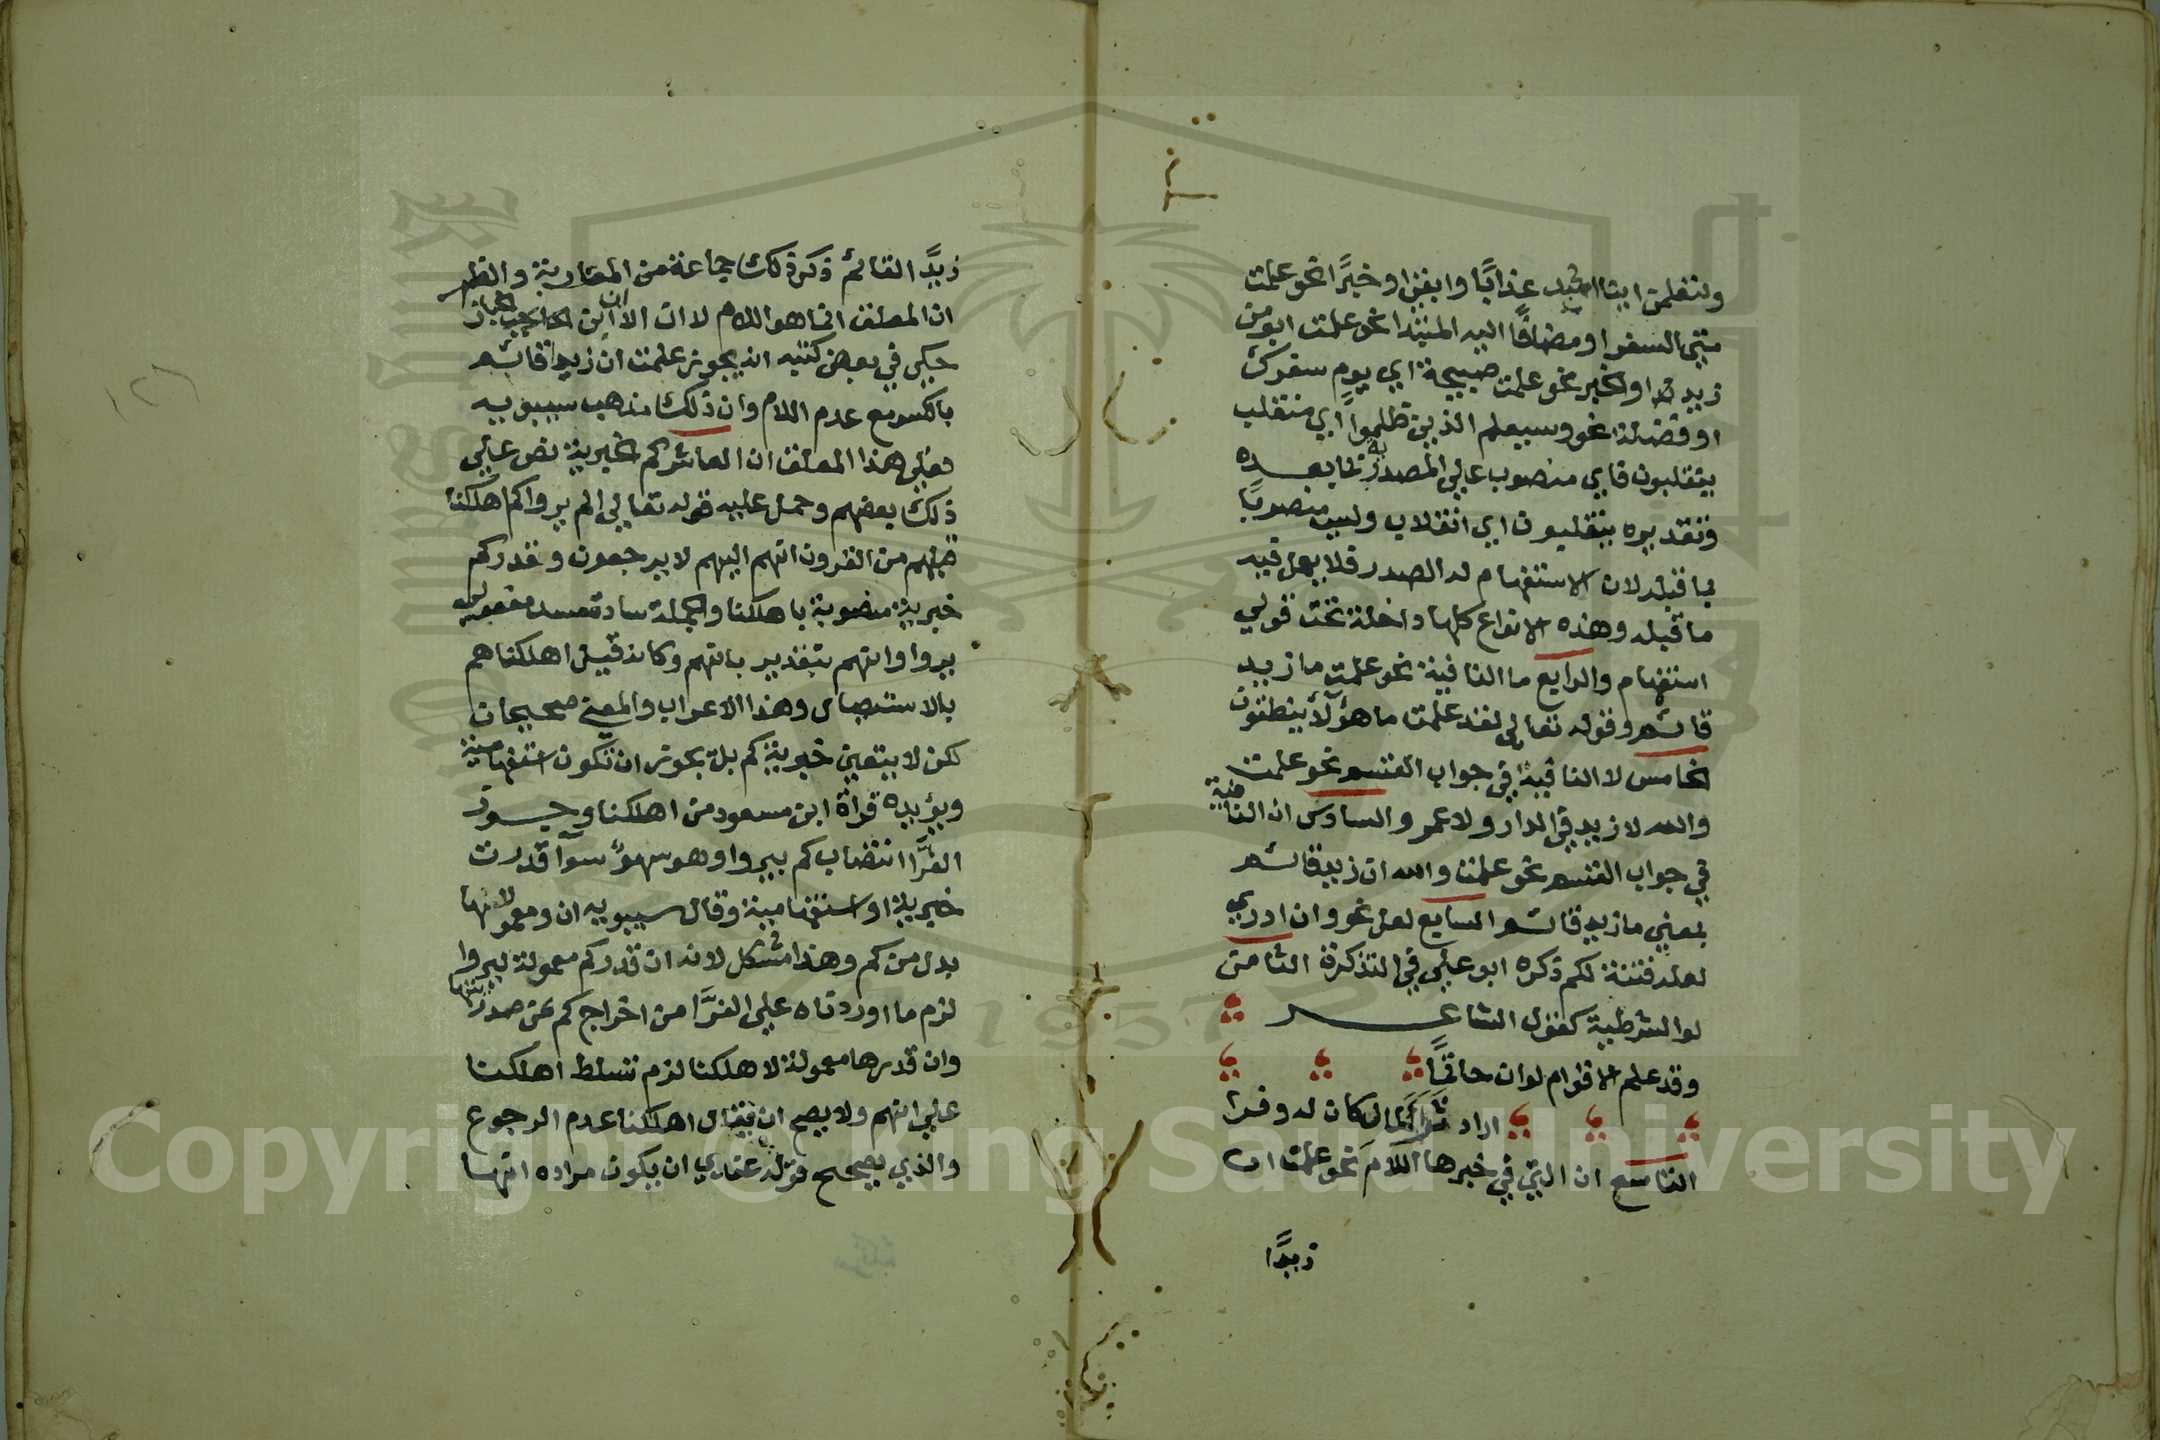 ولتعلمن اينا اشد عذابا وابقى او خبرًا نحو علمت
متى السفر او مضافًا اليه المبتدا نحو علمت ابو من
زيد او الخبر نحو علمت صبيحة اي يوم سفرك
او فضلة نحو وسيعلم الذين ظلموا اي منقلب
ينقلبون فاي منصوب على المصدرية بما بعده
وتقديره ينقلبون اي انقلاب وليس منصوبًا
بما قبله لان الاستفهام له الصدر فلا يعمل فيه
ما قبله وهذه الانواع كلها داخلة تحت قولي
استفهام والرابع ما النافية نحو علمت ما زيد
قائم وقوله تعالى لقد علمت ما هؤلآء ينطقون
الخامس لا النافية في جواب القسم نحو علمت
والله لا زيد في الدار ولا عمرو السادس ان النافية
في جواب القسم نحو علمت والله ان زيد قائم
بمعني ما زيد قائم السابع لعل نحو وان ادري
لعله فتنة لكم ذكره ابو علي في التذكرة الثامن
لو الشرطية كقول الشاعر
وقد علم الاقوام لو ان حاتمًا
اراد ثراء المال كان له وفر
التاسع ان التي في خبرها اللام نحو علمت ان
زيدًا
زيدًا القائم ذكر ذلك جماعة من المغاربة والظاهر
ان المعلق انما هو اللام لا ان الا ان ابن الخباز
حكى في بعض كتبه انه يجوز علمت ان زيدا قائم
بالكسر مع عدم اللام وان ذلك مذهب سيبويه
فعلى هذا المعلق ان العاشر كم الخبرية نص على
ذلك بعضهم وحمل عليه قوله تعالى الم يروا كم اهلكنا
قبلهم من القرون انهم اليهم لا يرجعون وقدر كم
خبرية منصوبة باهلكنا والجملة سادة مسد مفعولي
يروا وانهم بتقدير بانهم وكانه قيل اهلكناهم
بالاستئصال وهذا الاعراب والمعنى صحيحان
لكن لا يتعين خبرية كم بل يجوز ان تكون استفهامية
ويؤيده قراة ابن مسعود من اهلكنا وجوز
الفرَّا انتصاب كم بيروا وهو سهو سوآ قدرت
خبرية او استفهامية وقال سيبويه ان ومعمولاها
بدل من كم وهذا مشكل لانه ان قدر كم معمولة ليروا
لزم ما اوردناه على الفرَّا من اخراج كم عن صدريتها
وان قدرها معمولة لاهلكنا لزم تسلط اهلكنا
على انهم ولا يصح ان يقال اهلكنا عدم الرجوع
والذي يصحح قوله عندي ان يكون مراده انها
١٢٦
1957
Copyright © King Saud University